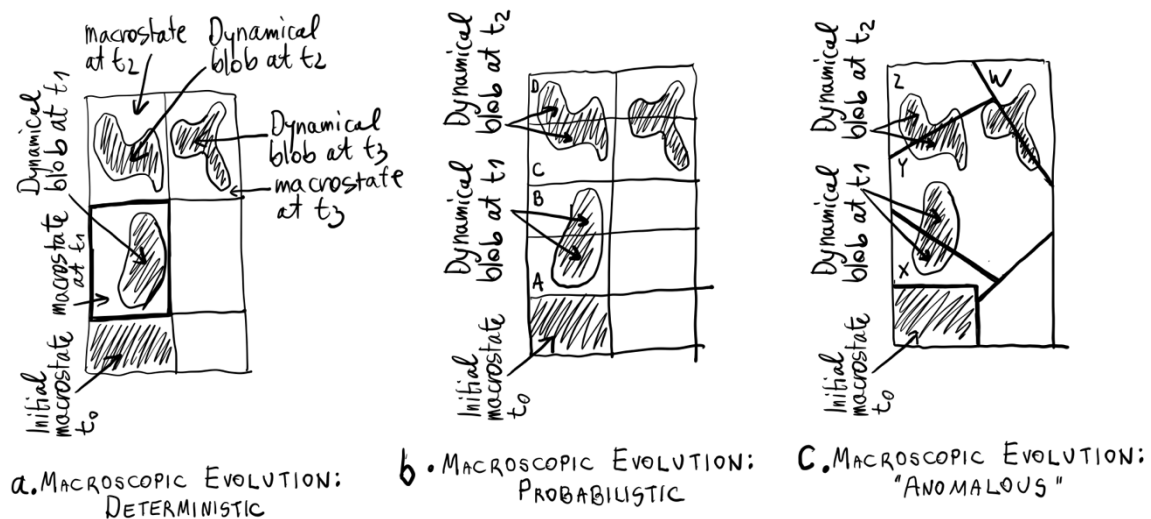 macrostate
at t2
Dynamical
blob at t2
Dynamical
blob at t1
Dynamical
blob at t3
macrostate
at t3
macrostate
at t1
Initial
macrostate
t0
a. MACROSCOPIC EVOLUTION:
DETERMINISTIC
Dynamical
blob at t2
Dynamical
blob at t1
D
C
B
A
Initial
macrostate
t0
b. MACROSCOPIC EVOLUTION:
PROBABILISTIC
Dynamical
blob at t2
Dynamical
blob at t1
Z
W
Y
X
Initial
macrostate
t0
C. MACROSCOPIC EVOLUTION:
"ANOMALOUS"